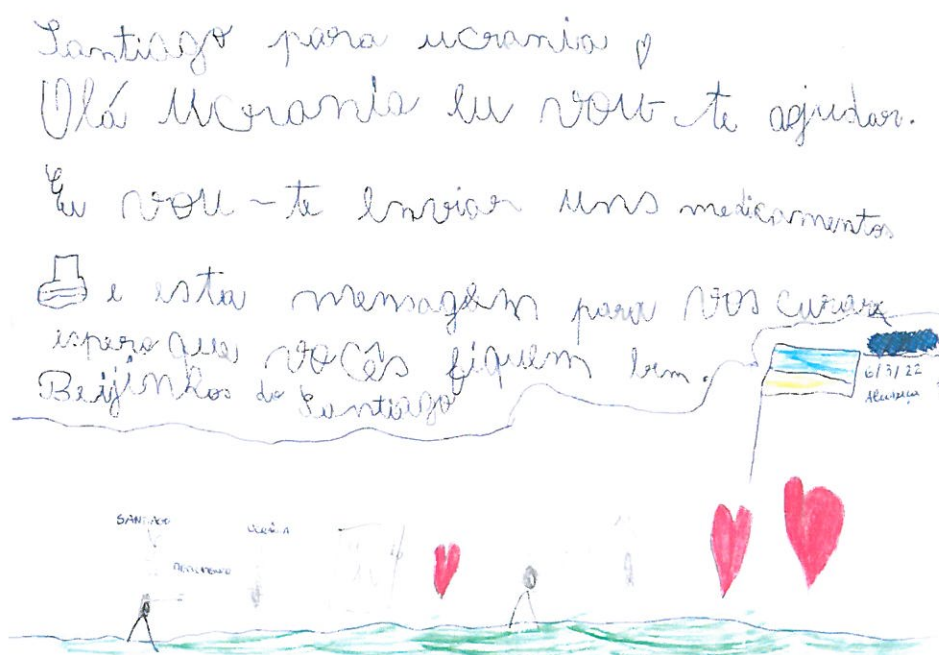 Santiago para ucrania
Olá Ucrania eu vou-te ajudar.
Eu vou-te enviar uns medicamentos
e esta mensagem para vos curar
espero que vocês fiquem bem.
Beijinhos do Santiago
6/3/22
SANTIAGO